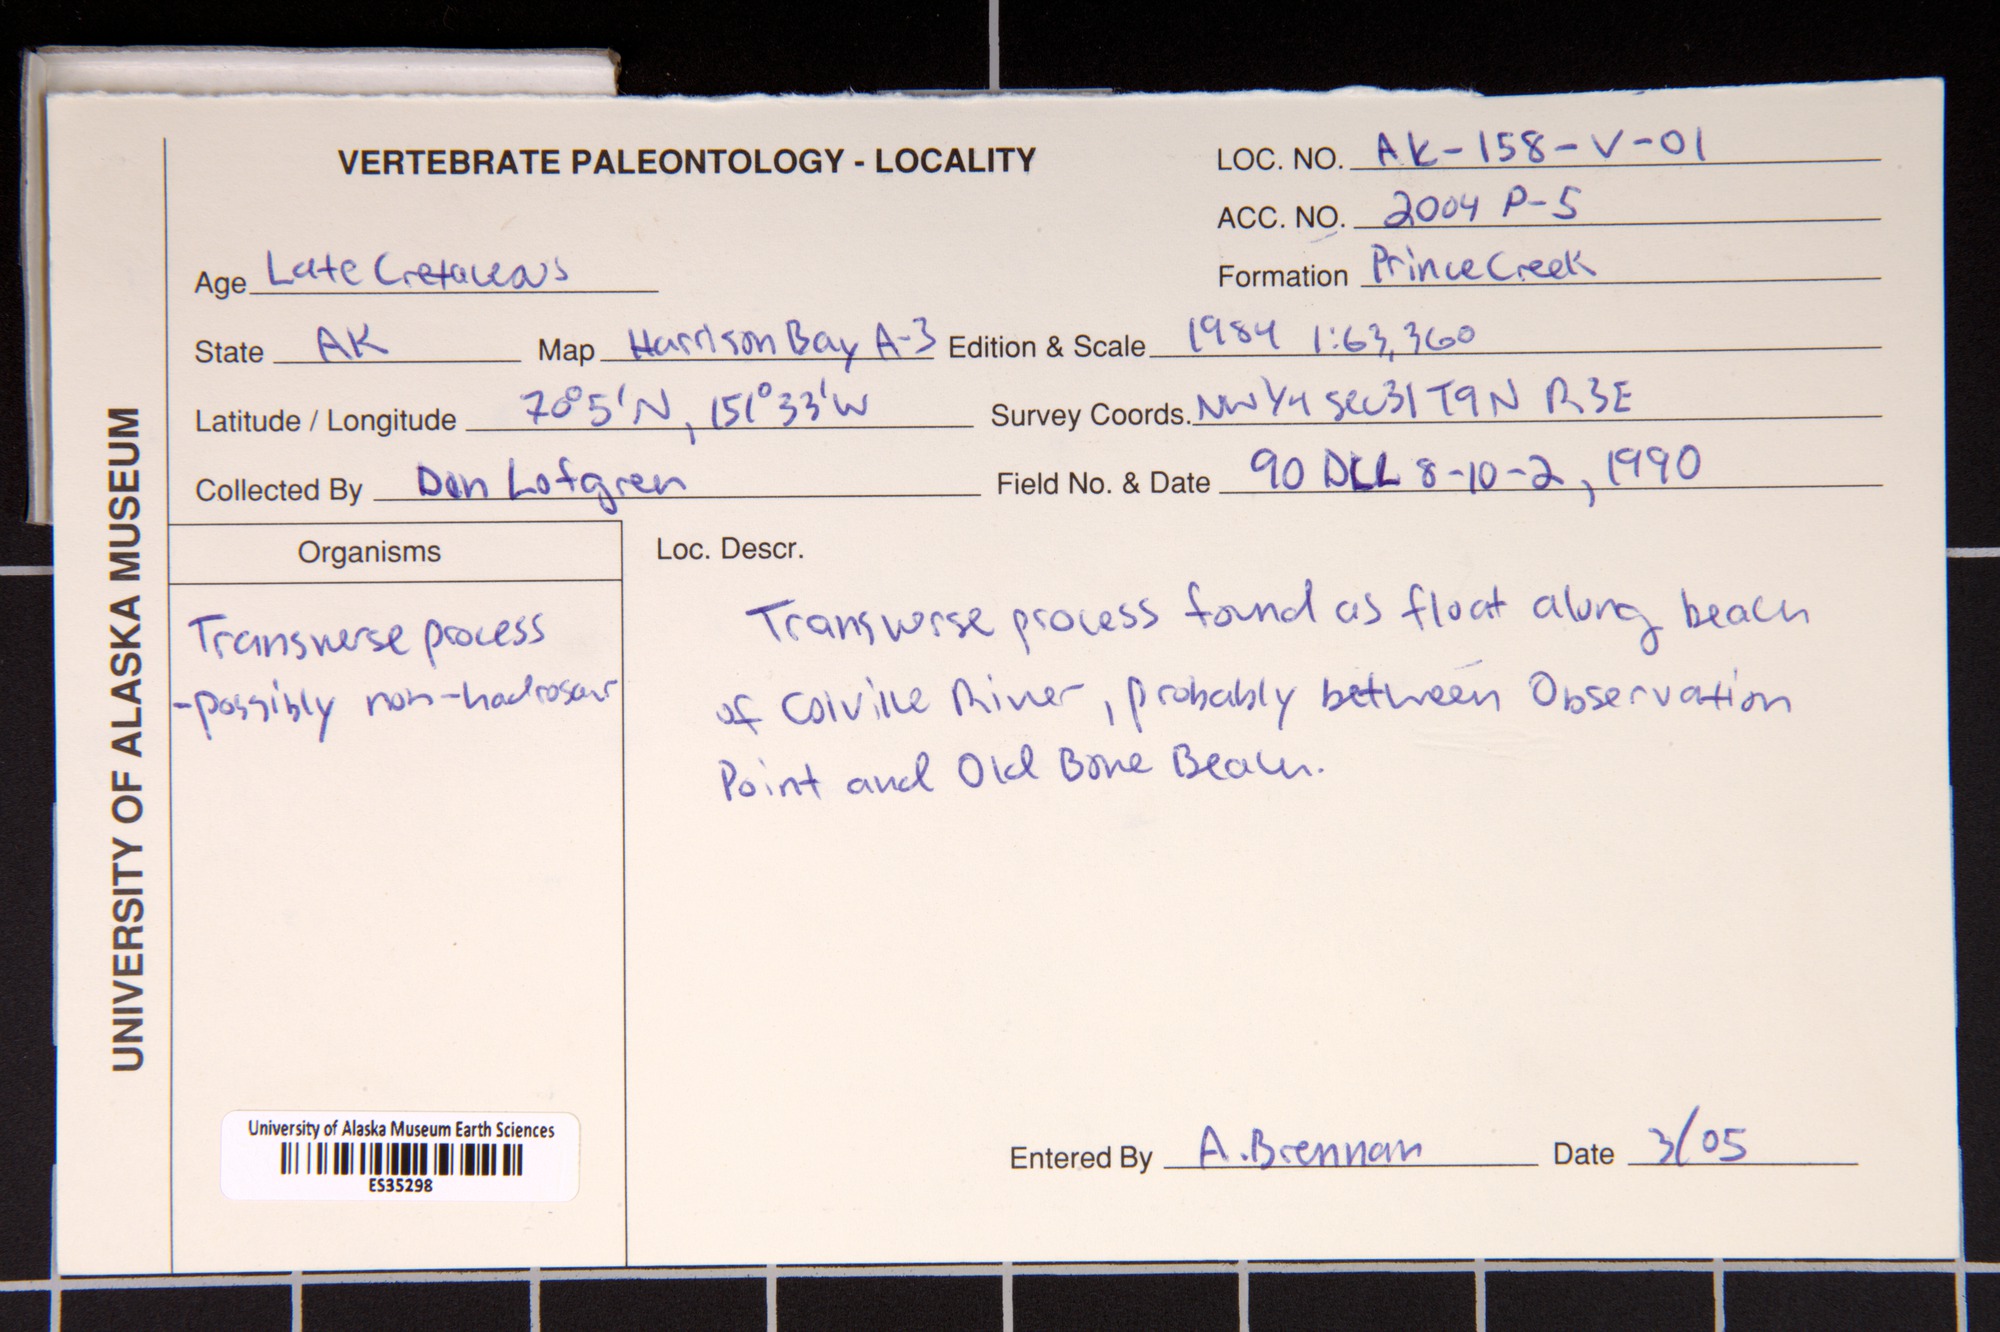 VERTEBRATE PALEONTOLOGY - LOCALITY
LOC. NO. AK-158-V-01
ACC. NO. 2004 P-5
Age Late Cretaceous
Formation Prince Creek
State AK Map Harrison Bay A-3 Edition & Scale 1984 1:63,360
Latitude / Longitude 70°5'N, 151°33'W Survey Coords. NW 1/4 Sec 31 T9N R3E
Collected By Don Lofgren Field No. & Date 90 DLL 8-10-2, 1990
UNIVERSITY OF ALASKA MUSEUM
Organisms
Transverse process
-possibly non-hadrosaur
Loc. Descr.
Transverse process found as float along beach
of Colville River, probably between Observation
Point and Old Bone Beach.
University of Alaska Museum Earth Sciences
ES35298
Entered By A. Brennan Date 3/05